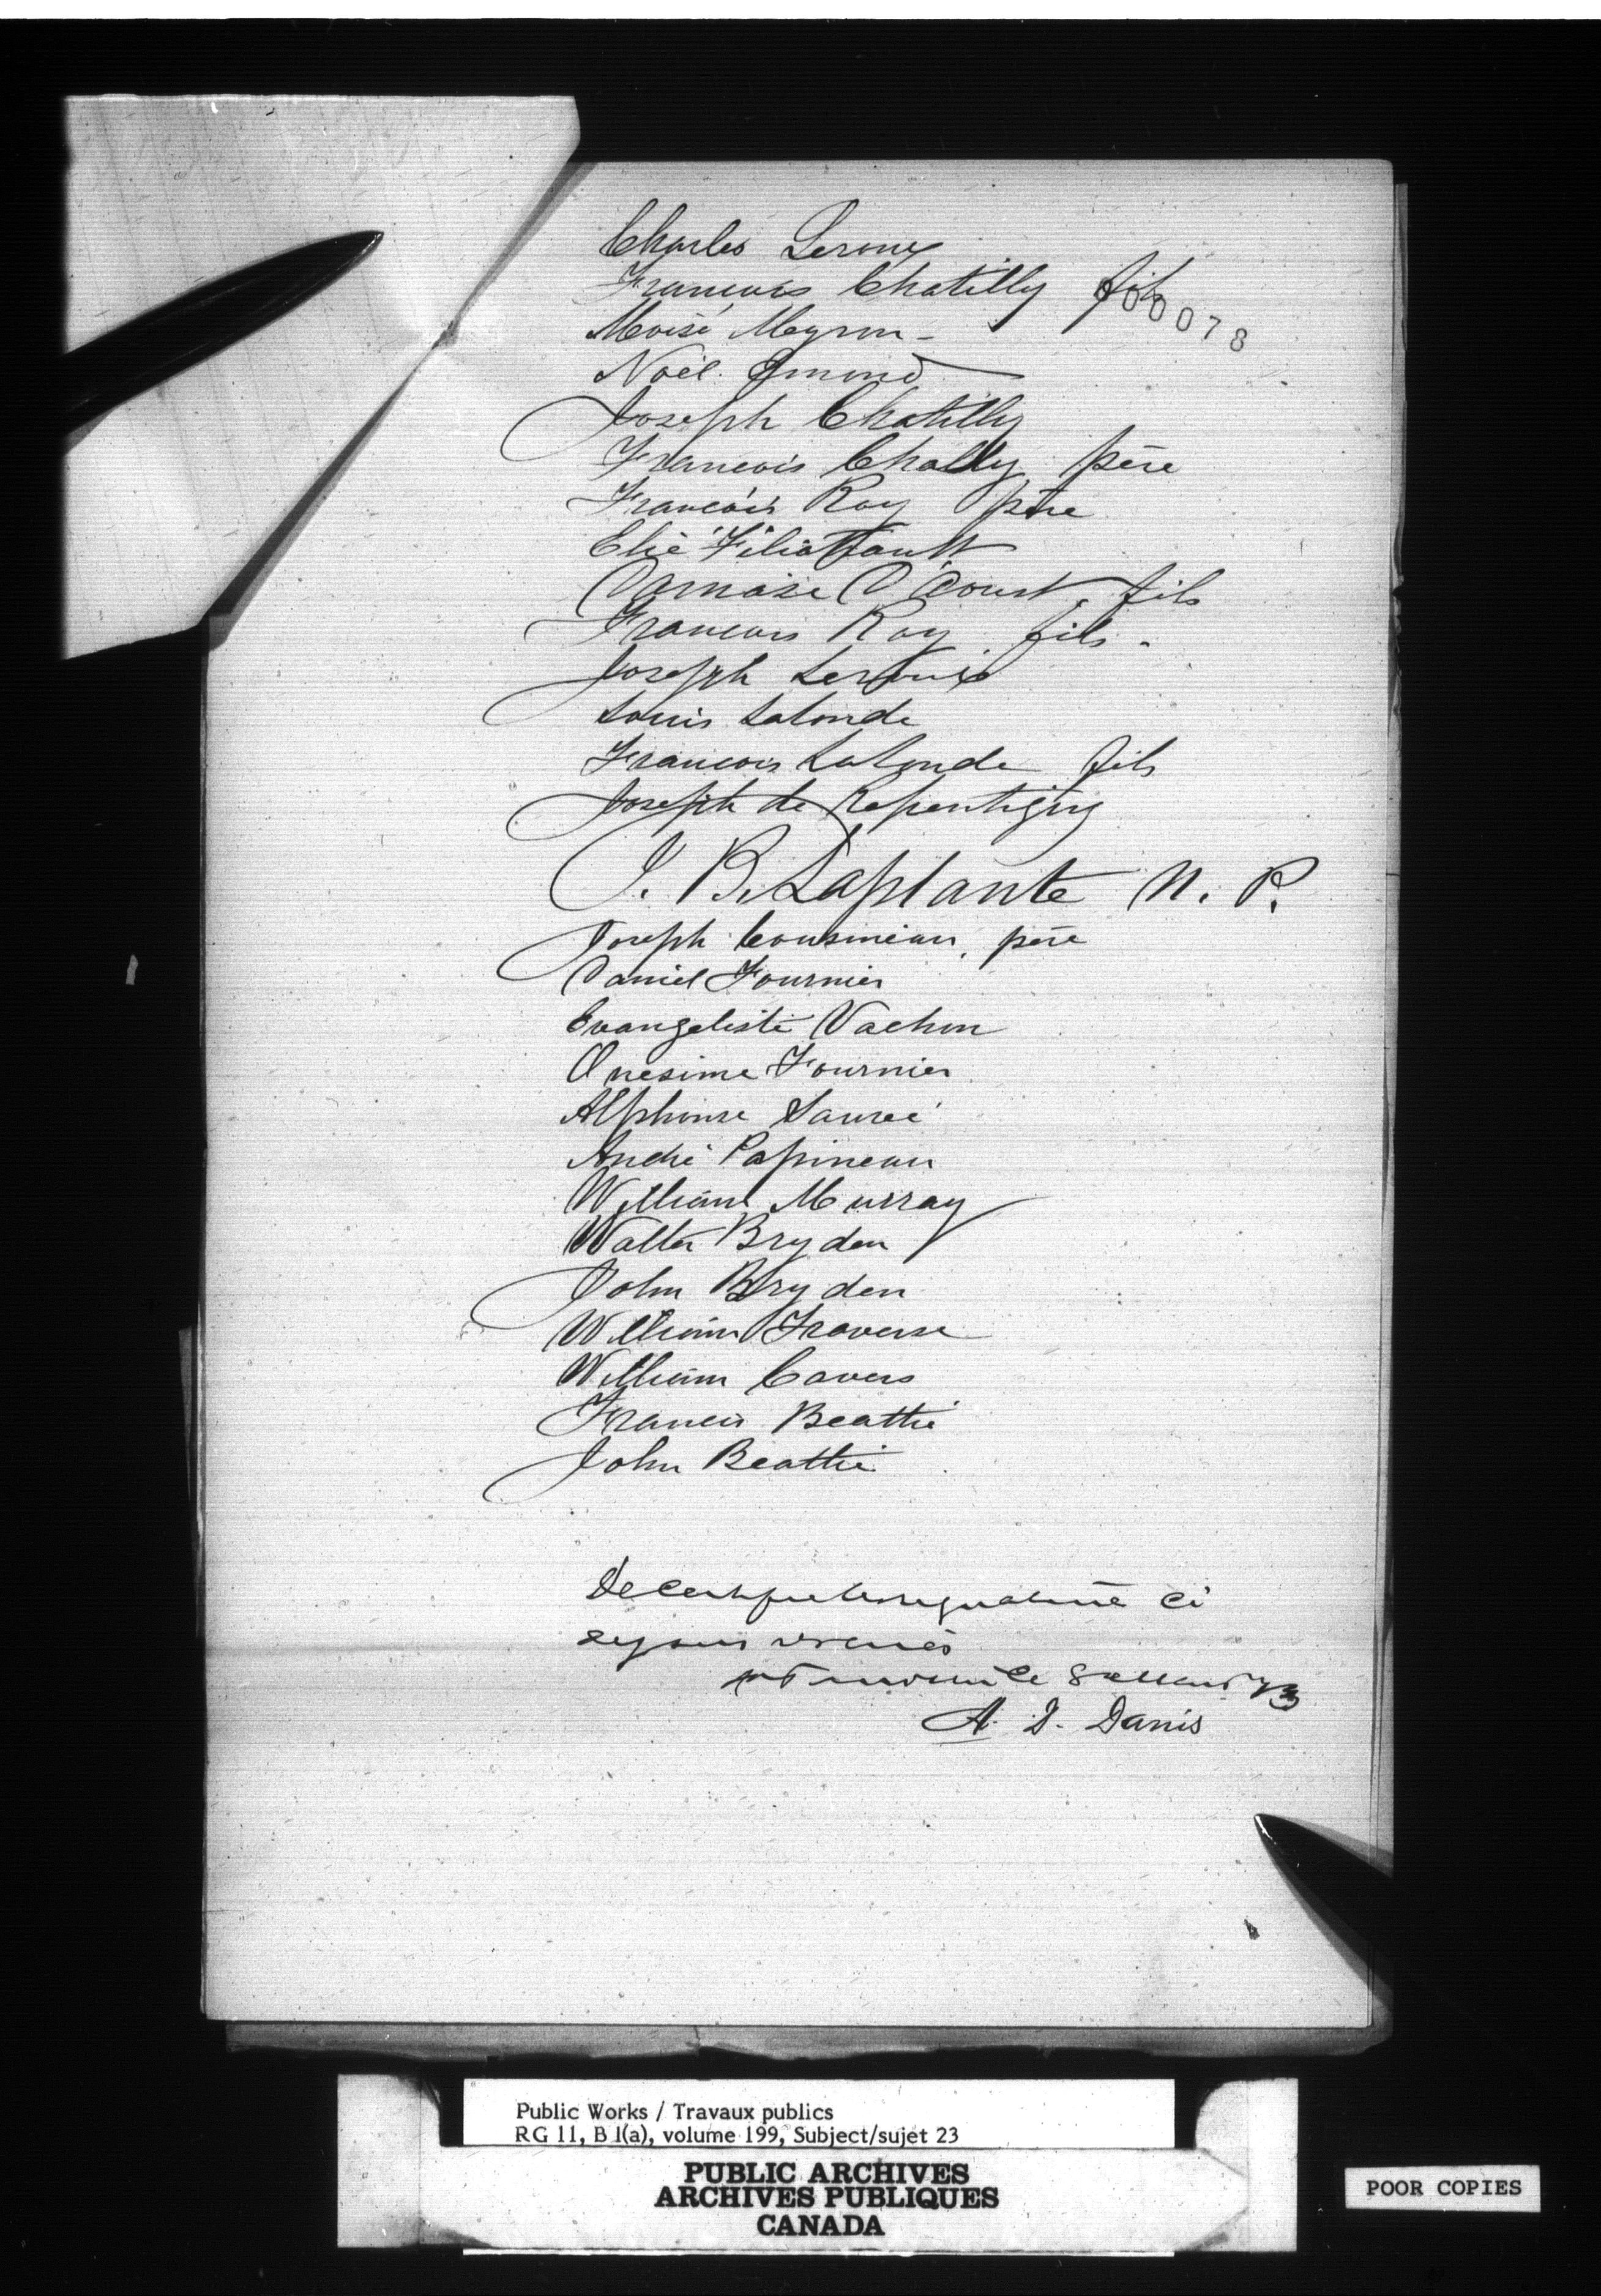 Charles Leroux
Francois Chatilly fils
000078
Moise Meyron -
Noël Emond
Joseph Chatilly
Francois Chatlly père
Francois Roy père
Elie Filiatrault
Damase D'Aoust fils
Francois Roy fils -
Joseph Leroux
Louis Lalonde
Francois Lalonde fils
Joseph de Repentigny
J. B. Laplante N. P.
Joseph Cousineau, père
Daniel Fournier
Evangeliste Vachon
Onesime Fournier
Alphonse Sauvé
André Papineau
William Murray
Walter Bryden
John Bryden
William Traverse
William Cavers
Francis Beattie
John Beattie
ci
A. D. Danis
Public Works / Travaux publics
RG 11, B 1(a), volume 199, Subject/sujet 23
PUBLIC ARCHIVES
ARCHIVES PUBLIQUES
CANADA
POOR COPIES